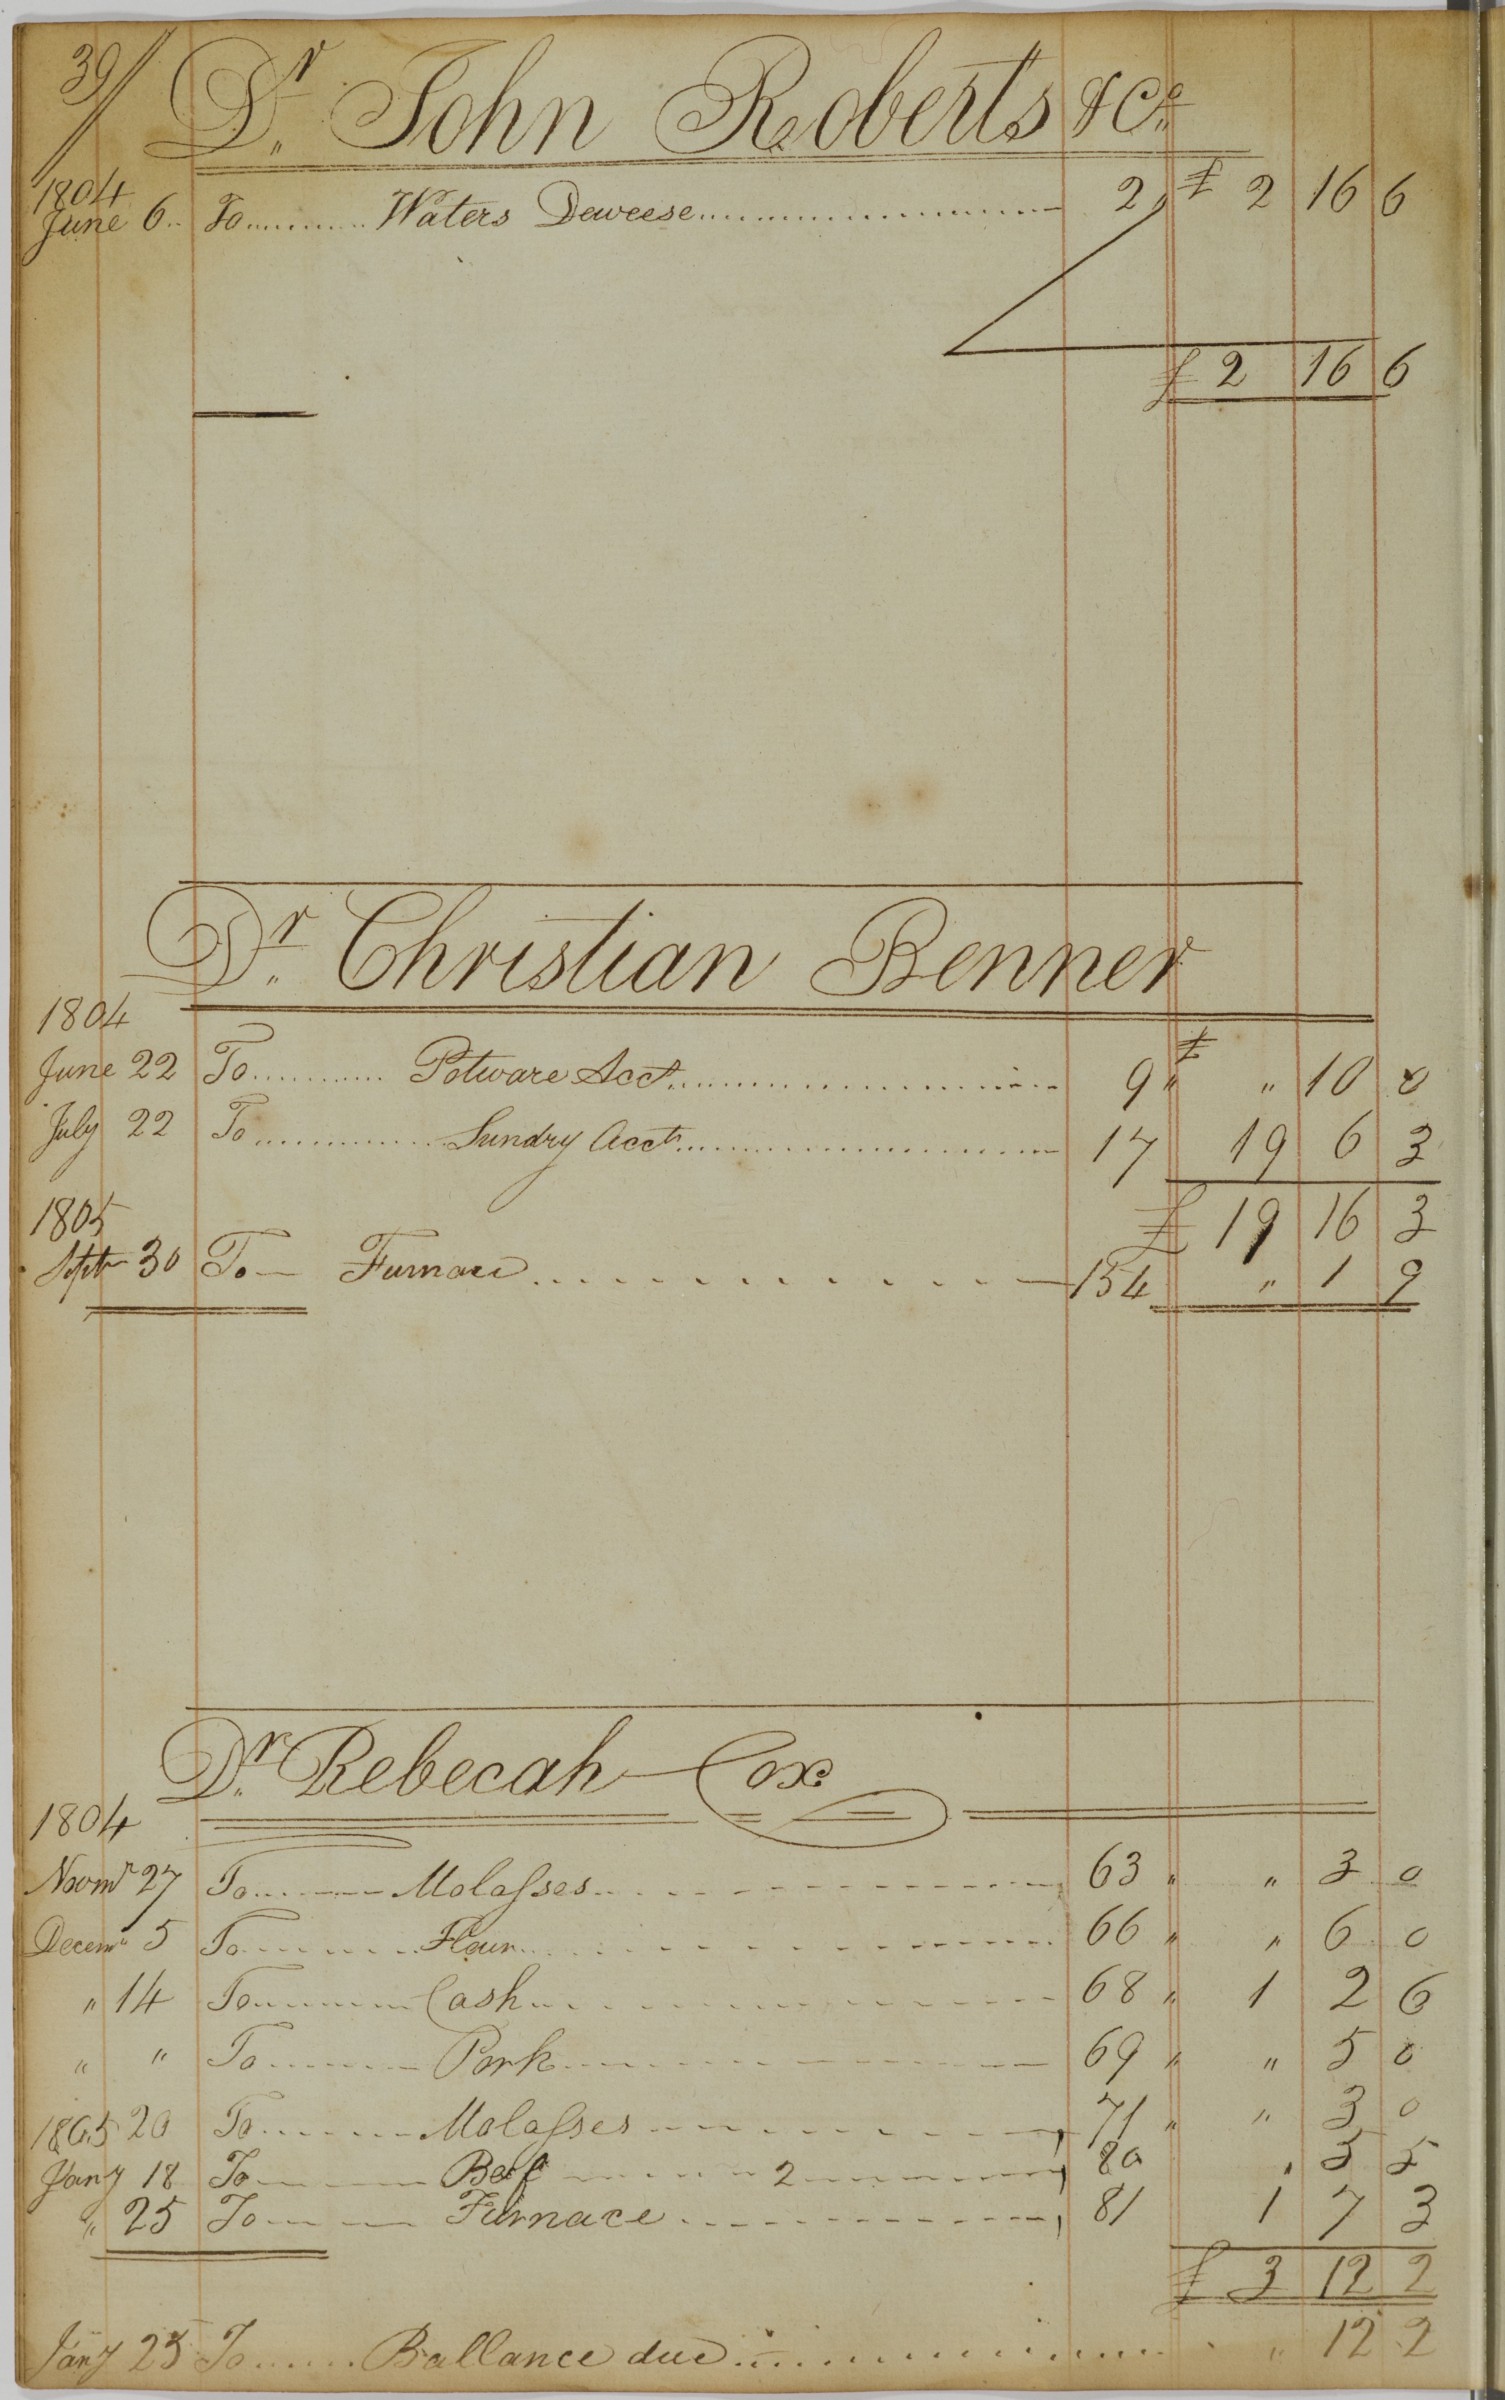 39
Dr. John Roberts & Co.
1804
June 6 To Waters Deweese 2 £ 2 16 6
£ 2 16 6
Dr. Christian Benner
1804
June 22 To Potware Acct 9 " £ " 10 0
July 22 To Sundry Accts 17 19 6 3
£ 19 16 3
1805
Septr 30 To Furnace 154 " 1 9
Dr. Rebecah Cox
1804
Novmr 27 To Molasses 63 " " 3 0
Decemr 5 To Flour 66 " " 6 0
" 14 To Cash 68 " 1 2 6
" " To Pork 69 " " 5 0
1805 20 To Molasses 71 " " 3 0
Jany 18 To Beef 2 80 " 5 5
" 25 To Furnace 81 1 7 3
£ 3 12 2
Jany 25 To Ballance due " 12 2